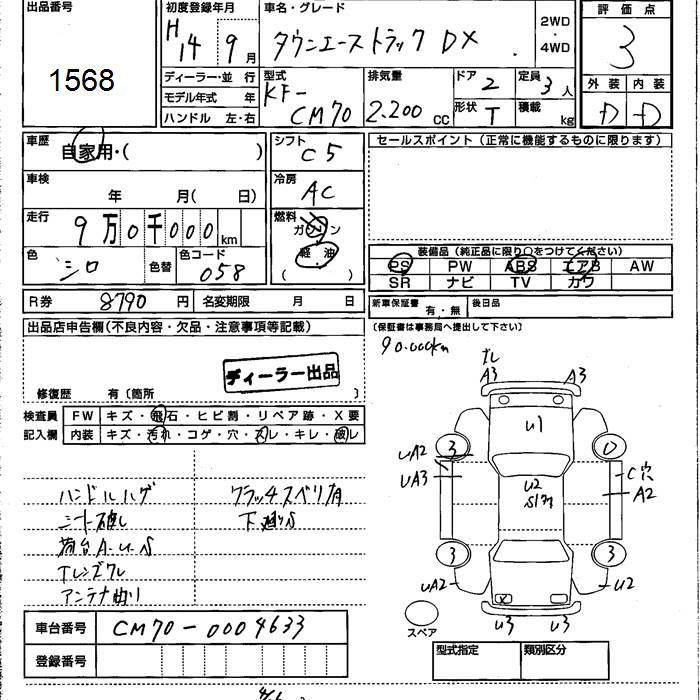 出品番号
1568
初度登録年月
H 14 9月
車名・グレード
タウンエーストラック DX
2WD
・
4WD
評価点
3
外装 内装
D D
ディーラー・並行
モデル年式 年
ハンドル 左・右
型式
KF-
CM70
排気量
2.200 cc
ドア 2
形状 T
定員 3人
積載 kg
車歴
自家用・( )
シフト
C5
車検
年 月( 日)
冷房
AC
走行
9万0千000km
燃料
ガソリン
軽・油
( )
色
シロ
色替
色コード
058
セールスポイント(正常に機能するものに限ります)
装備品(純正品に限り○をつけてください)
PS PW ABS エアB AW
SR ナビ TV カワ
R券 8790円 名変期限 月 日
新車保証書 有・無 後日品
(保証書は事務局へ提出して下さい)
出品店申告欄(不良内容・欠品・注意事項等記載)
ディーラー出品
修復歴 有〔箇所 〕
90.000km
検査員 FW キズ・飛石・ヒビ割・リペア跡・X要
記入欄 内装 キズ・汚れ・コゲ・穴・スレ・キレ・破レ
ハンドルハゲ クラッチスベリ有
シート破レ 下廻りS
荷台A.u.S
アンテナ曲り
A3 A3
u1
3 0
uA2
uA3
u2
C穴
A2
3 3
uA2 u2
X
u3 u3
スペア
車台番号 CM70-0004633
登録番号
型式指定 類別区分